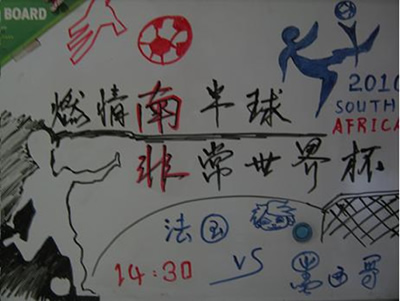 BOARD
2010
SOUTH
AFRICA
燃情南半球
非常世界杯
法国
VS
墨西哥
14:30